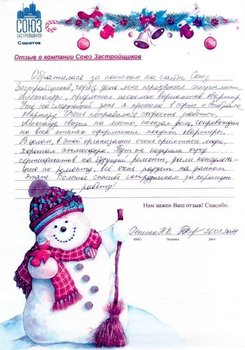 СОЮЗ
ЗАСТРОЙЩИКОВ
Саратов
Отзыв о компании Союз Застройщиков
Обратилась за помощью на сайт Союз
Застройщиков, через день мне перезвонил специалист
предложил несколько вариантов квартир.
На следующий день я приехала в офис и выбрала
квартиру. Очень понравилась скорость работы,
возили на место, показали дом, сопровождали
на всех этапах оформления покупки квартиры.
В целом, в этой организации очень приятные люди,
хорошая атмосфера. Тут же подарили кучу
сертификатов на будущий ремонт, дали
по ремонту, все очень рады на данном
этапе. Большое спасибо сотрудникам за хорошую
работу!
Нам важен Ваш отзыв! Спасибо.
ФИО Подпись Дата